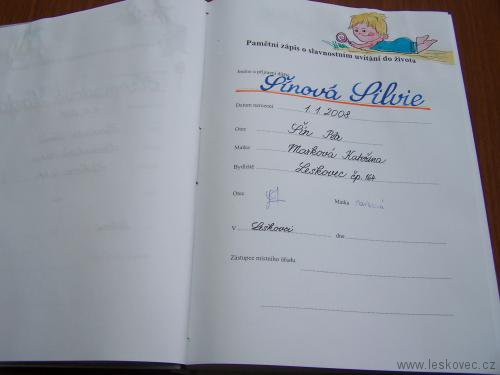 Pamětní zápis o slavnostním uvítání do života
Jméno a příjmení dítěte
Šínová Silvie
Datum narození 1.1.2008
Otec Šín Petr
Matka Marková Kateřina
Bydliště Leskovec čp. 164
Otec Matka Marková
V Leskovci dne
Zástupce místního úřadu
www.leskovec.cz